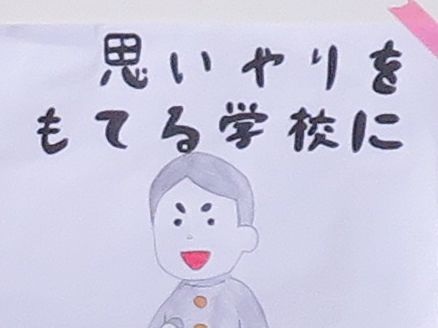 思いやりを
もてる学校に